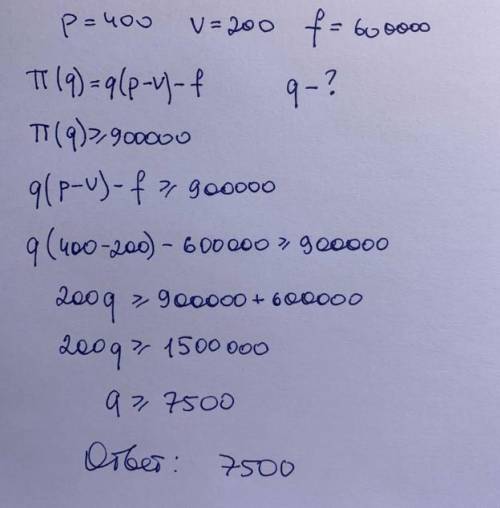 p = 400 v = 200 f = 600000
π(q) = q(p-v) - f q - ?
π(q) ⩾ 900000
q(p-v) - f ⩾ 900000
q(400-200) - 600000 ⩾ 900000
200q ⩾ 900000 + 600000
200q ⩾ 1500000
q ⩾ 7500
Ответ: 7500